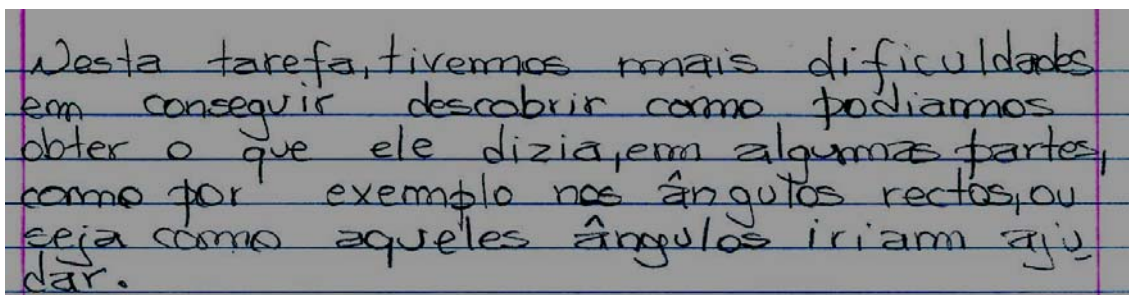 Nesta tarefa, tivemos mais dificuldades
em conseguir descobrir como podiamos
obter o que ele dizia, em algumas partes,
como por exemplo nos ângulos rectos, ou
seja como aqueles ângulos iriam aju
dar.